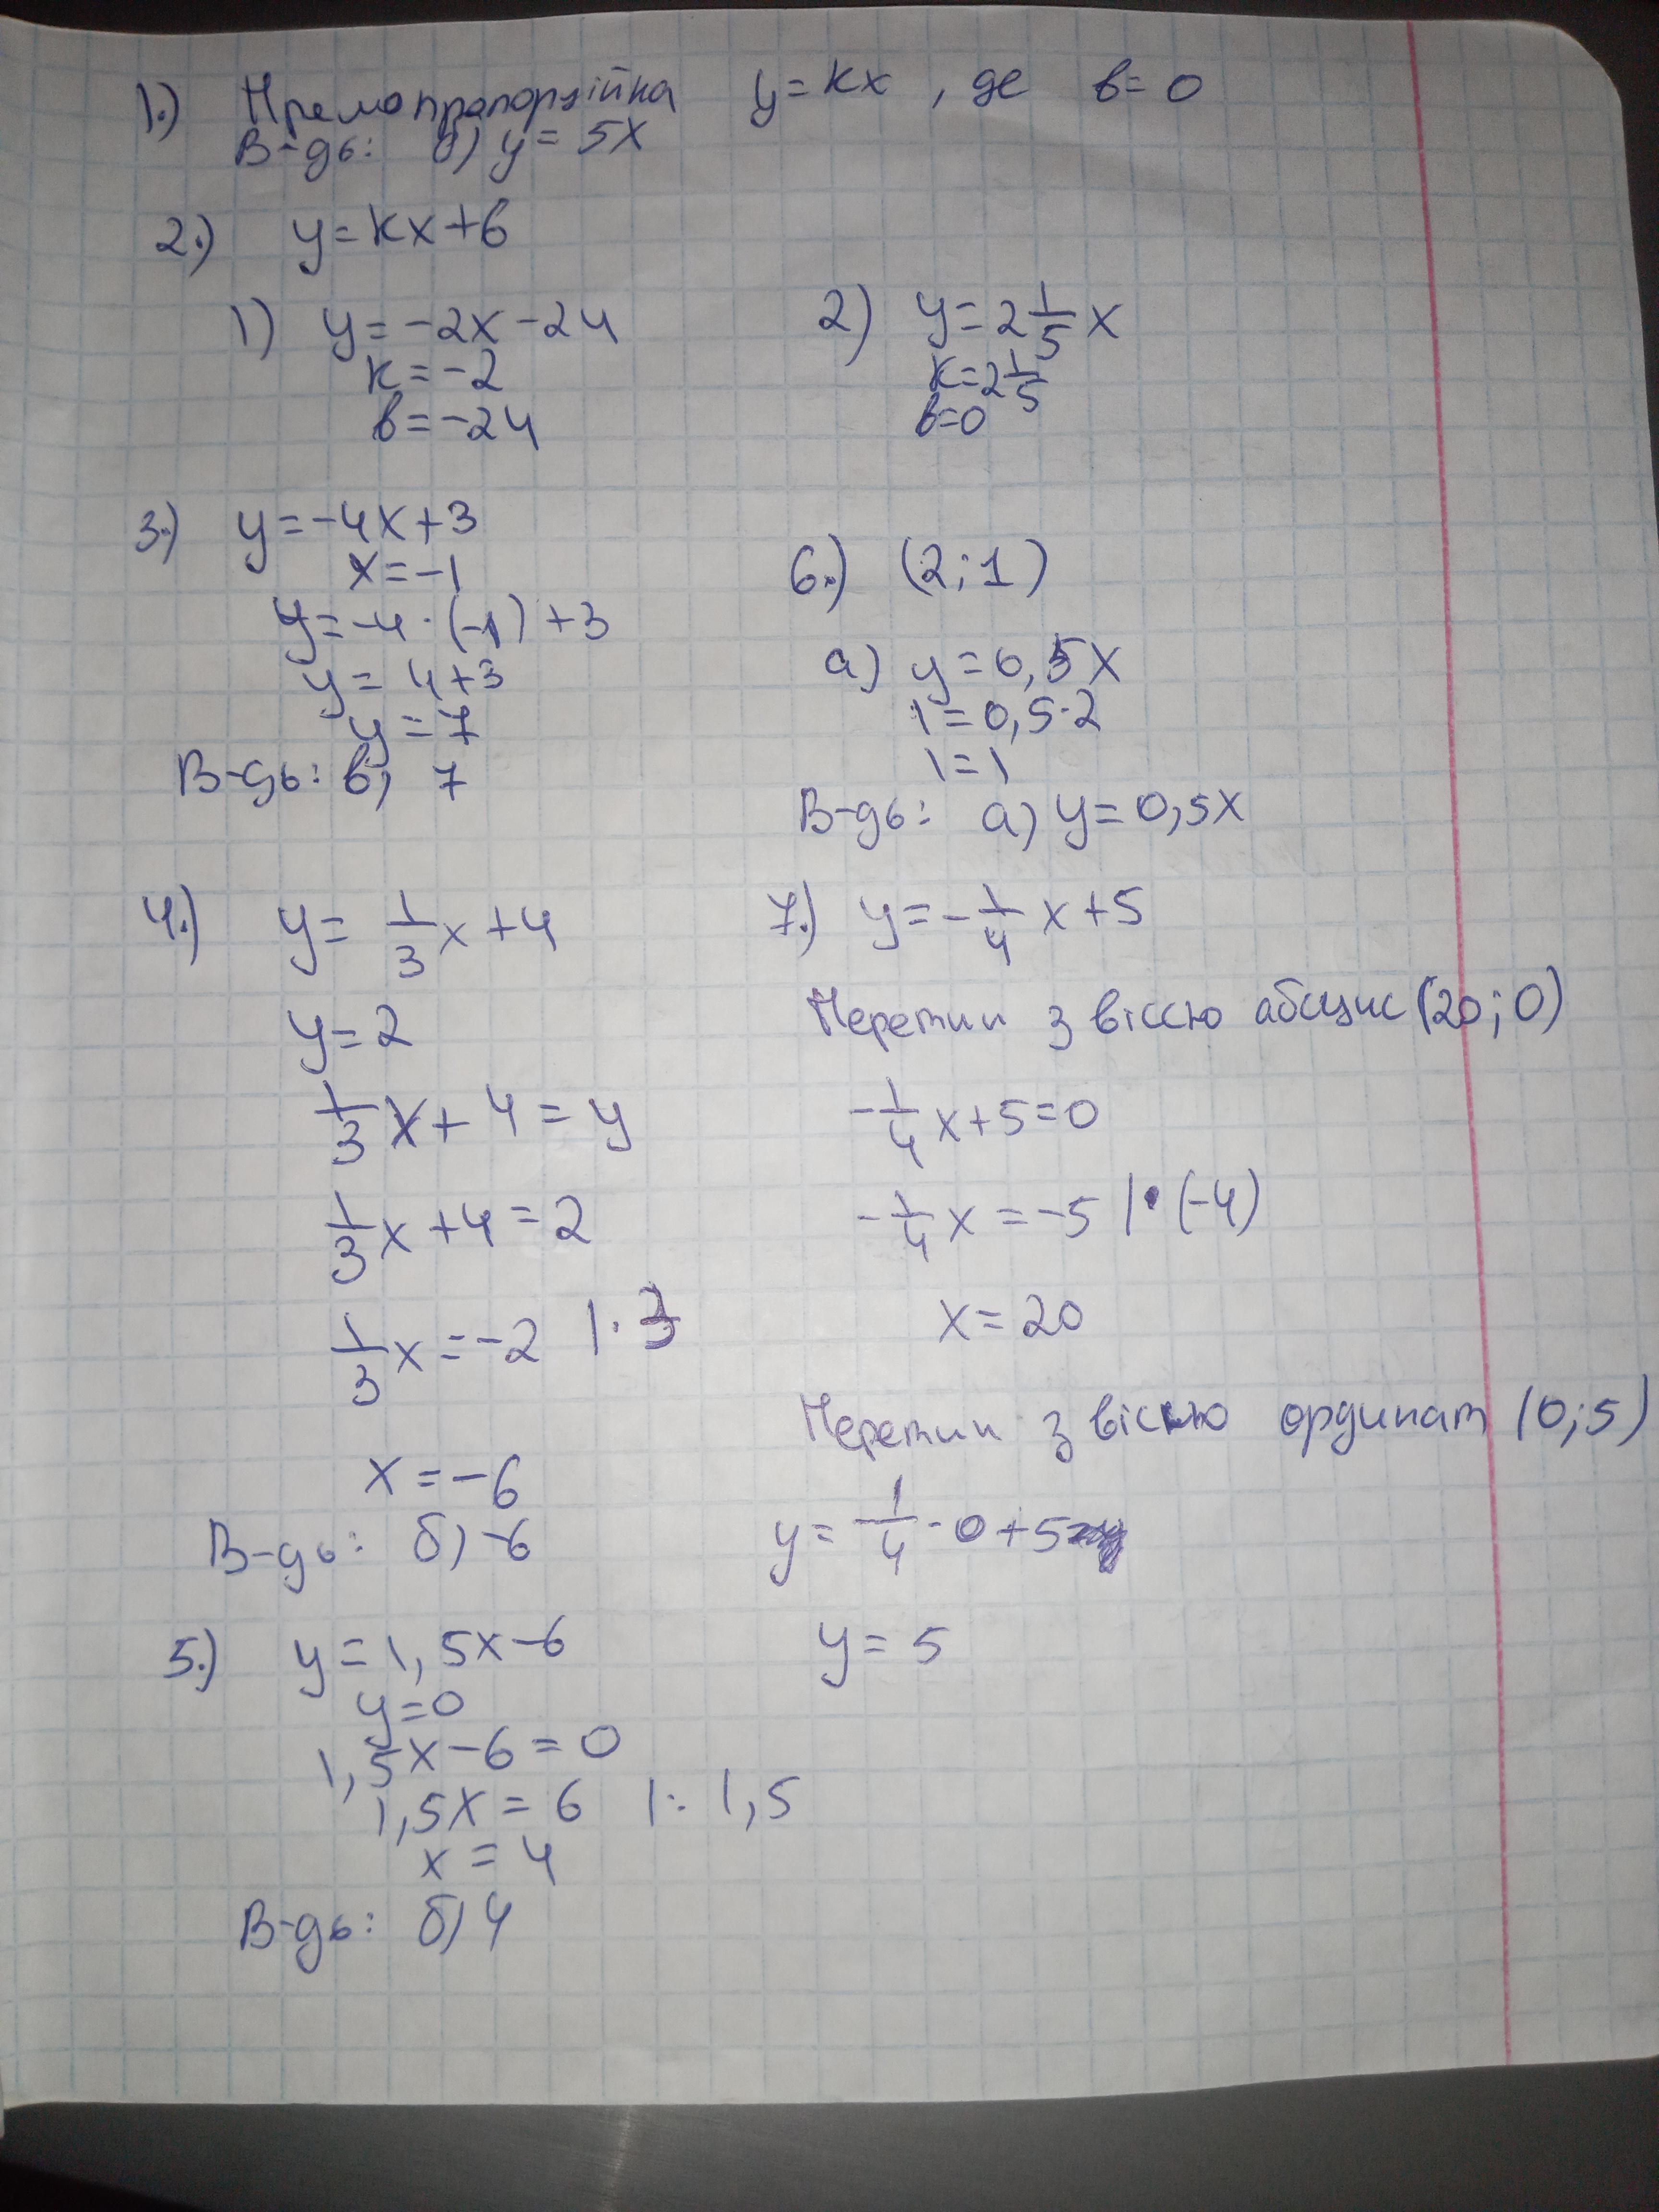 1.) Прямопропорційна y = kx , де b = 0
В-дь: б) y = 5x
2.) y = kx + b
1) y = -2x - 24
k = -2
b = -24
2) y = 2 1/5 x
k = 2 1/5
b = 0
3.) y = -4x + 3
x = -1
y = -4 · (-1) + 3
y = 4 + 3
y = 7
В-дь: б) 7
4.) y = 1/3 x + 4
y = 2
1/3 x + 4 = y
1/3 x + 4 = 2
1/3 x = -2 | · 3
x = -6
В-дь: б) -6
5.) y = 1,5x - 6
y = 0
1,5x - 6 = 0
1,5x = 6 | : 1,5
x = 4
В-дь: б) 4
6.) (2; 1)
а) y = 0,5x
1 = 0,5 · 2
1 = 1
В-дь: а) y = 0,5x
7.) y = -1/4 x + 5
Перетин з віссю абсцис (20; 0)
-1/4 x + 5 = 0
-1/4 x = -5 | · (-4)
x = 20
Перетин з віссю ординат (0; 5)
y = -1/4 · 0 + 5
y = 5